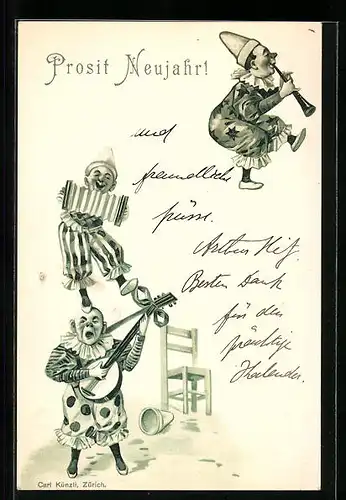 Prosit Neujahr!
und
freundliche
Grüsse.
Besten Dank
für den
prächtige
Kalender.
Carl Künzli, Zürich.